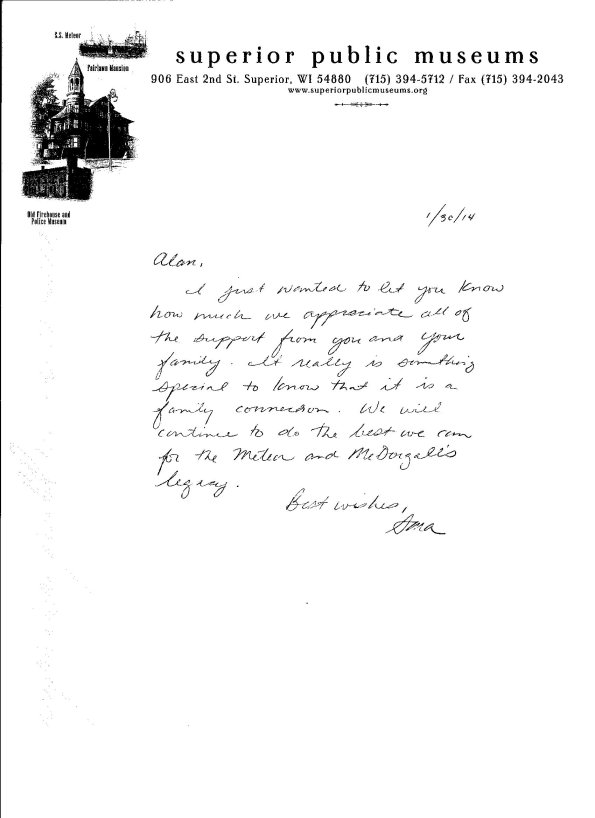 S.S. Meteor
Fairlawn Mansion
Old Firehouse and
Police Museum
superior public museums
906 East 2nd St. Superior, WI 54880 (715) 394-5712 / Fax (715) 394-2043
www.superiorpublicmuseums.org
1/30/14
Alan,
I just wanted to let you know
how much we appreciate all of
the support from you and your
family. It really is something
special to know that it is a
family connection. We will
continue to do the best we can
for the Meteor and McDougall's
legacy.
Best wishes,